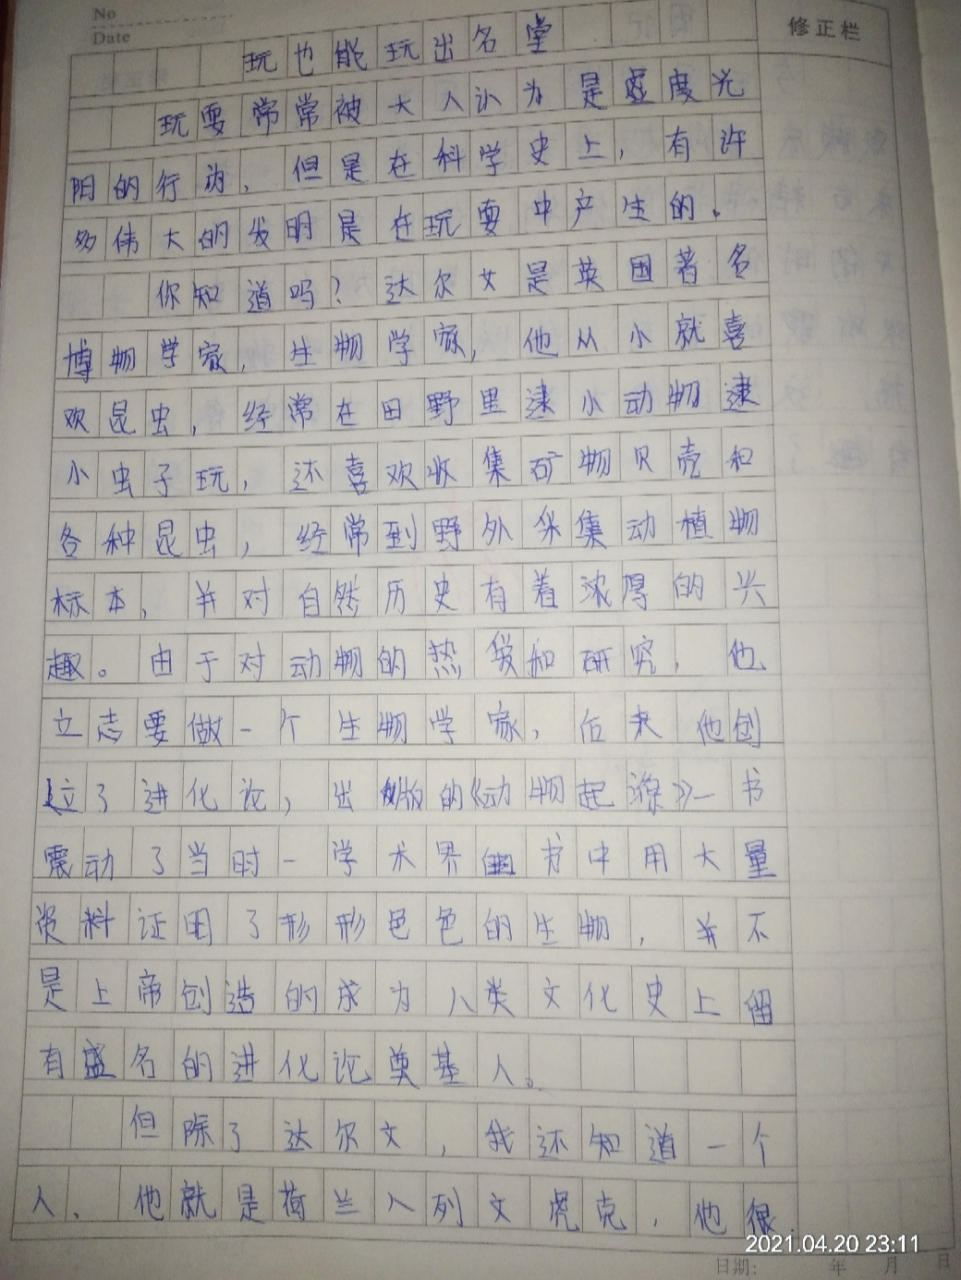 No
Date
修正栏
玩也能玩出名堂
玩耍常常被大人认为是虚度光
阳的行为，但是在科学史上，有许
多伟大的发明是在玩耍中产生的。
你知道吗？达尔文是英国著名
博物学家，生物学家，他从小就喜
欢昆虫，经常在田野里逮小动物逮
小虫子玩，还喜欢收集矿物贝壳和
各种昆虫，经常到野外采集动植物
标本，并对自然历史有着浓厚的兴
趣。由于对动物的热爱和研究，他
立志要做一个生物学家，后来他创
立了进化论，出版的《动物起源》一书
震动了当时一学术界 书中用大量
资料证田了形形色色的生物，并不
是上帝创造的成为人类文化史上留
有盛名的进化论奠基人。
但除了达尔文，我还知道一个
人、他就是荷兰人列文虎克，他很
2021.04.20 23:11
日期： 年 月 日